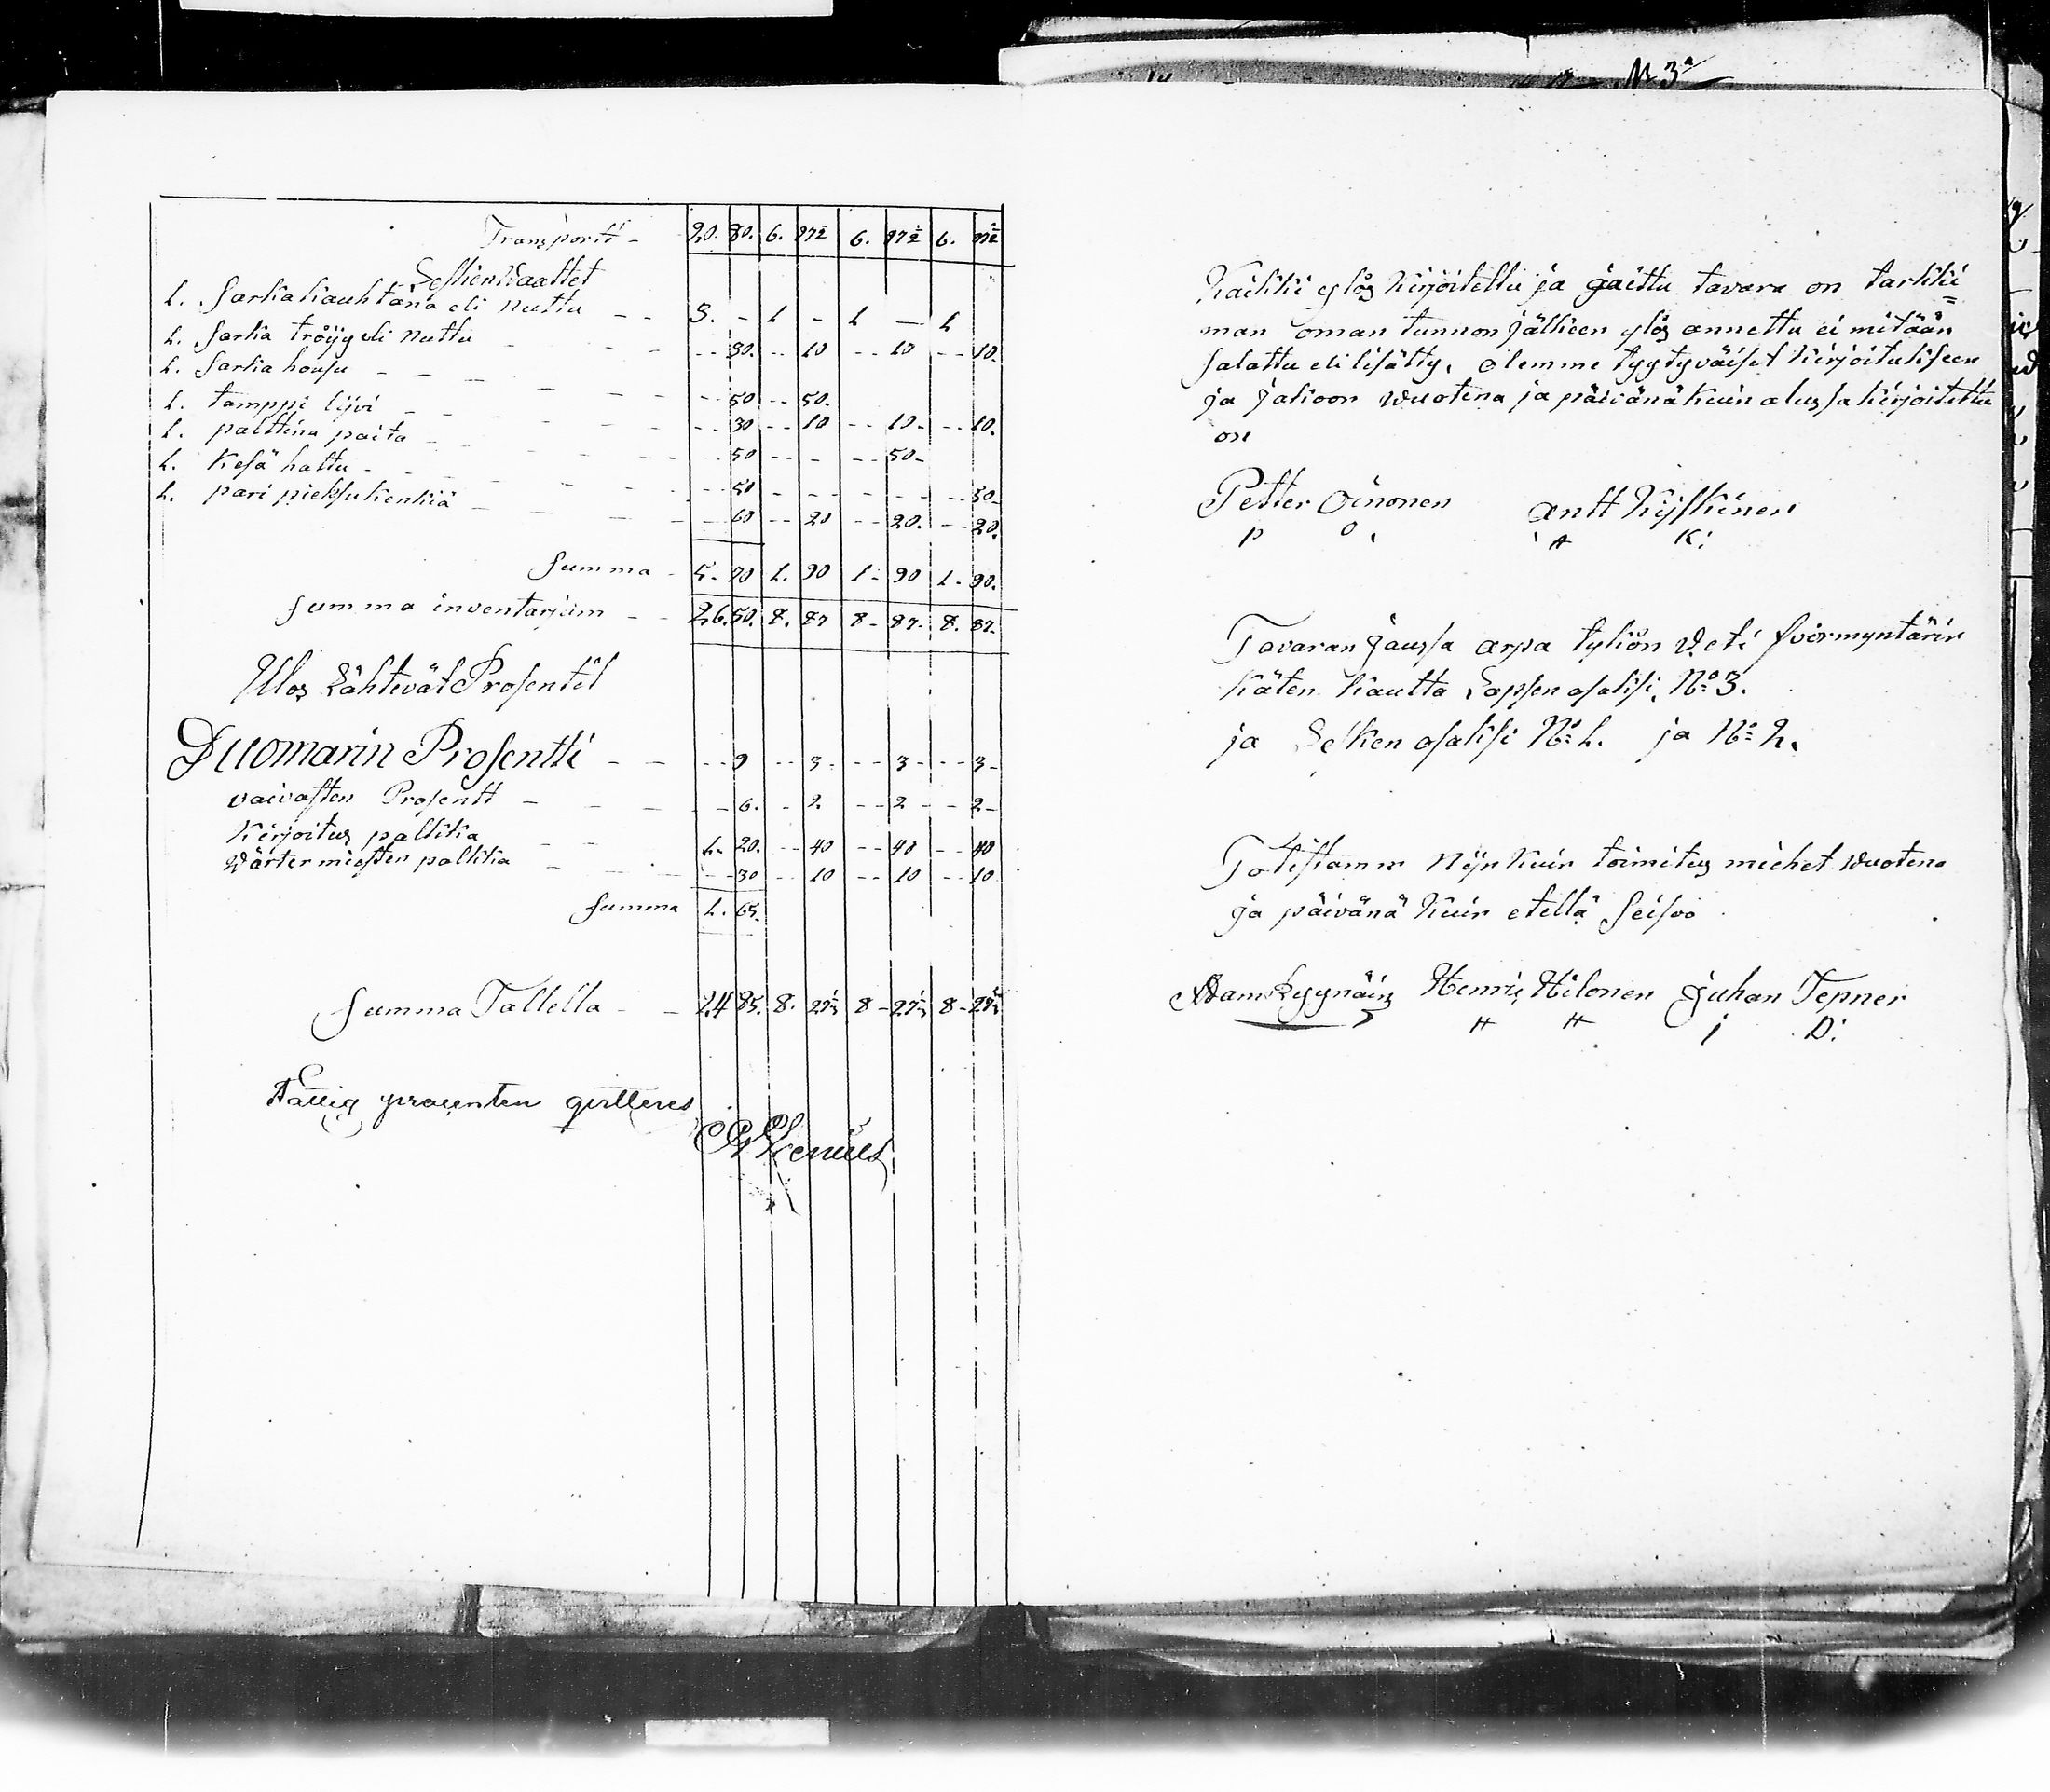 Nr 3a
Transportt - 20. 80. 6. 97½ 6. 97½ 6. 97½
Lesken Waattet
1. sarka kauhtana eli nuttu - - 3. - 1 - 1 - 1
1. sarka tröijy eli nuttu - - 30. - - 10 - - 10 - - 10.
1. sarka housu - - - 50 - - 50.
1. tamppi lijvi - - - 30 - - 10 - - 10 - - - 10.
1. palttina paita - - - 50 - - - - - 50 -
1. Kesä hattu - - - 50 - - - - - - - 50 -
1. pari pieksukenkiä - - - 60 - - 20 - - 20. - - 20.
summa - 5 - 70 1. 90 1 - 90 1 - 90.
summa inventarjum - - 26. 50. 8. 87 8 - 87 - 8. 87 -
Ulos Lähtevät Prosentit
Duomarin Prosentti - - - - 9 - - 3 - - - 3 - - - 3 -
vaivasten Prosentt - - - - 6. - 2. - - 2 - - 2 -
Kirjoitus palkka - - 1. 20. - - 40 - - 40 - - 40
Wärter miesten palkka - - - 30 - - 10 - - 10 - - 10
summa 1. 65.
summa Tallella - - 24 85. 8. 8 - 8 -
Fattig procenten qvitteras
Kaikki ylös kirjoitettu ja jaittu tavara on tarkki=
man oman tunnon jälkeen ylös annettu ei mitään
salattu eli lisätty, olemme tyytyväiset kirjoitukseen
ja jakoon wuotena ja päivänä kuin alussa kirjoitettu
on
Petter Oinonen Antt Kyskinen
P O. A K:
Tavaran jaussa arpa tykön veti Förmyntärin
käten kautta Lapsen osaksi, No 3.
ja Lesken osaksi No 1. ja No 2.
Totistamm nijn kuin toimitus miehet wuotena
ja päivänä kuin etellä seisoo
Adam Kyynäinz Henric Hilonen Juhan Tepner
H H J D: